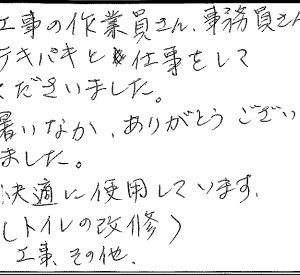 工事の作業員さん、事務員さん
テキパキと仕事をして
くださいました。
暑いなか、ありがとうござい
ました。
快適に使用しています。
(トイレの改修)
工事、その他、